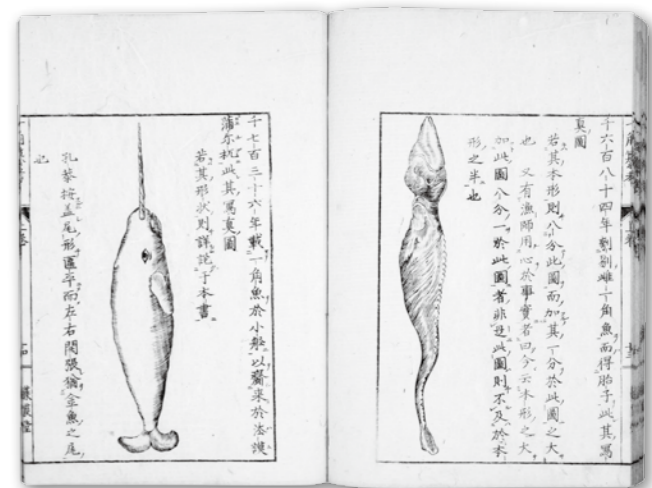 千六百八十四年割剖雌一角魚而得胎子此其寫
真圖
若其本形則八分此圖而加其一分於此圖之大
也 又有漁師用心於事實者曰今云本形之大
加此圖八分一於此圖者非是此圖則不及於本
形之半也
千七百三十六年載一角魚於小船以齎来於法謾
蒲尓杭此其寫真圖
若其形状則詳説于本書
孔恭按盖尾形匾平而左右開張猶金魚之尾
也
蒹葭堂